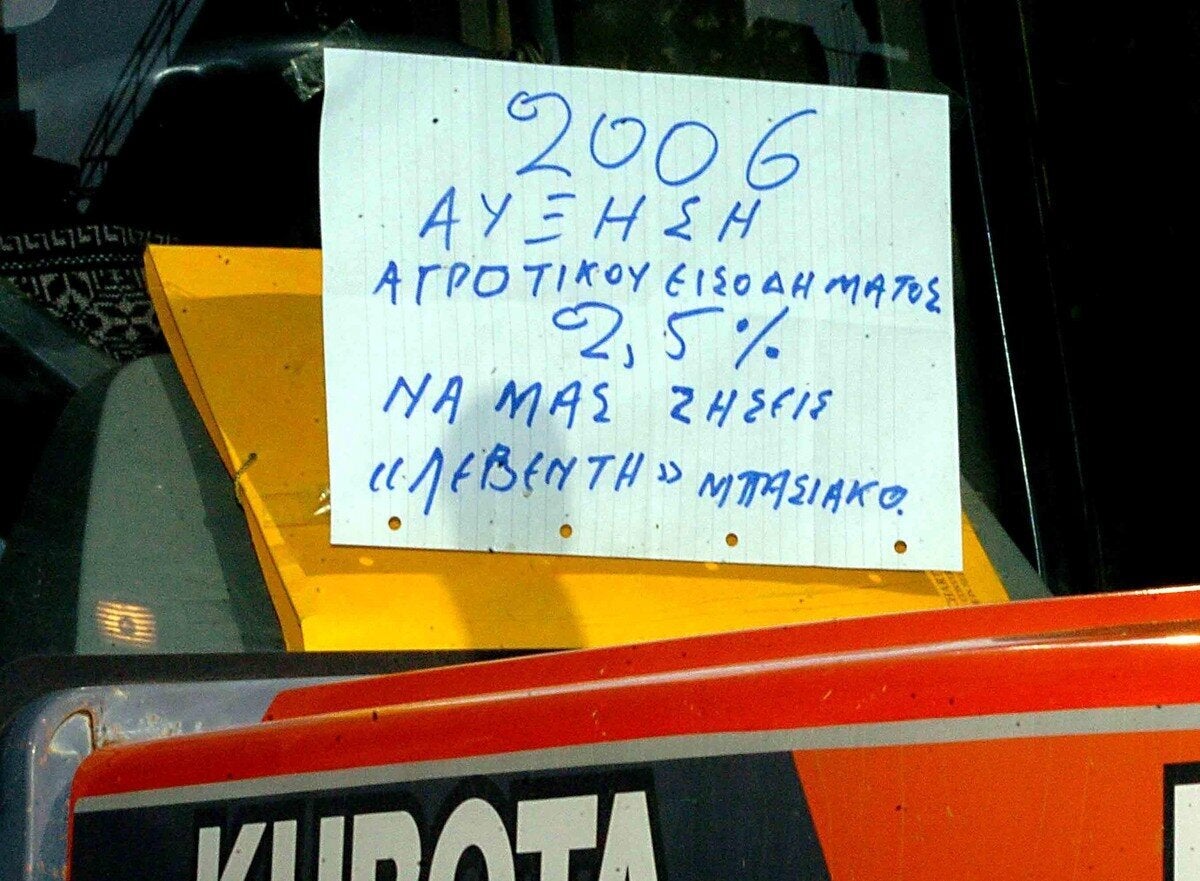 2006
ΑΥΞΗΣΗ
ΑΓΡΟΤΙΚΟΥ ΕΙΣΟΔΗΜΑΤΟΣ
2,5%
ΝΑ ΜΑΣ ΖΗΣΕΙΣ
«ΛΕΒΕΝΤΗ» ΜΠΑΣΙΑΚΟ.
KUBOTA